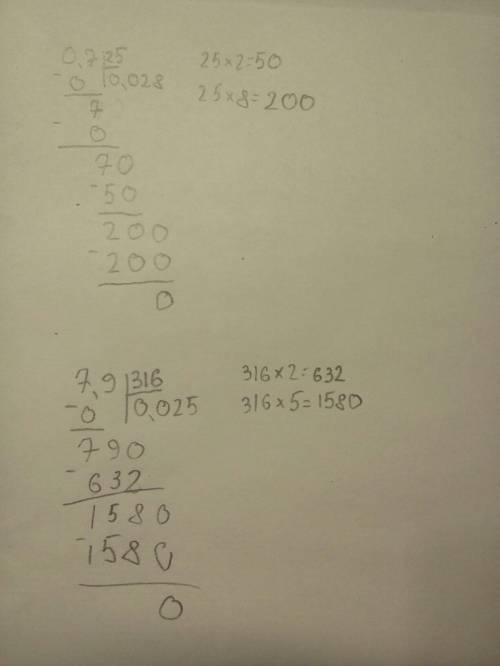 0,7 25 25×2=50
- 0 0,028 25×8=200
7
- 0
70
- 50
200
- 200
0
7,9 316 316×2=632
- 0 0,025 316×5=1580
790
- 632
1580
- 1580
0